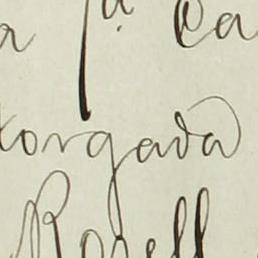 a 1ª. Ca
torgada
Rosell